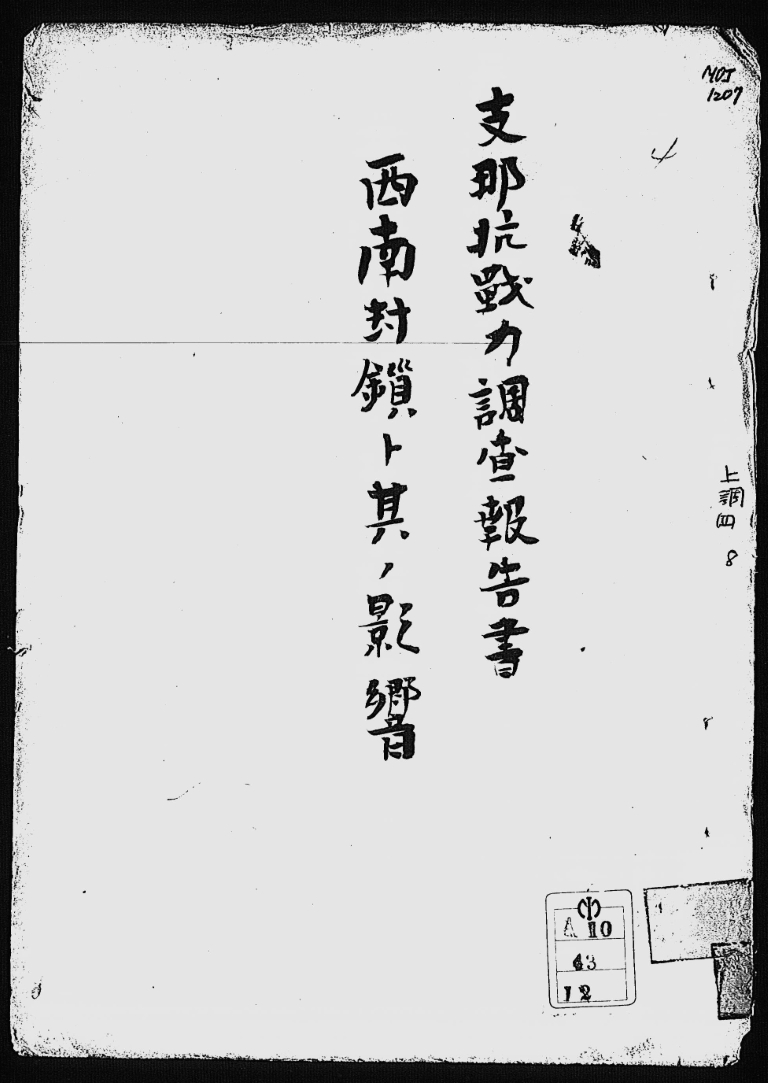 MOJ
1207
支那抗戰力調査報告書
西南封鎖ト其ノ影響
上調四 8
A 10
43
12